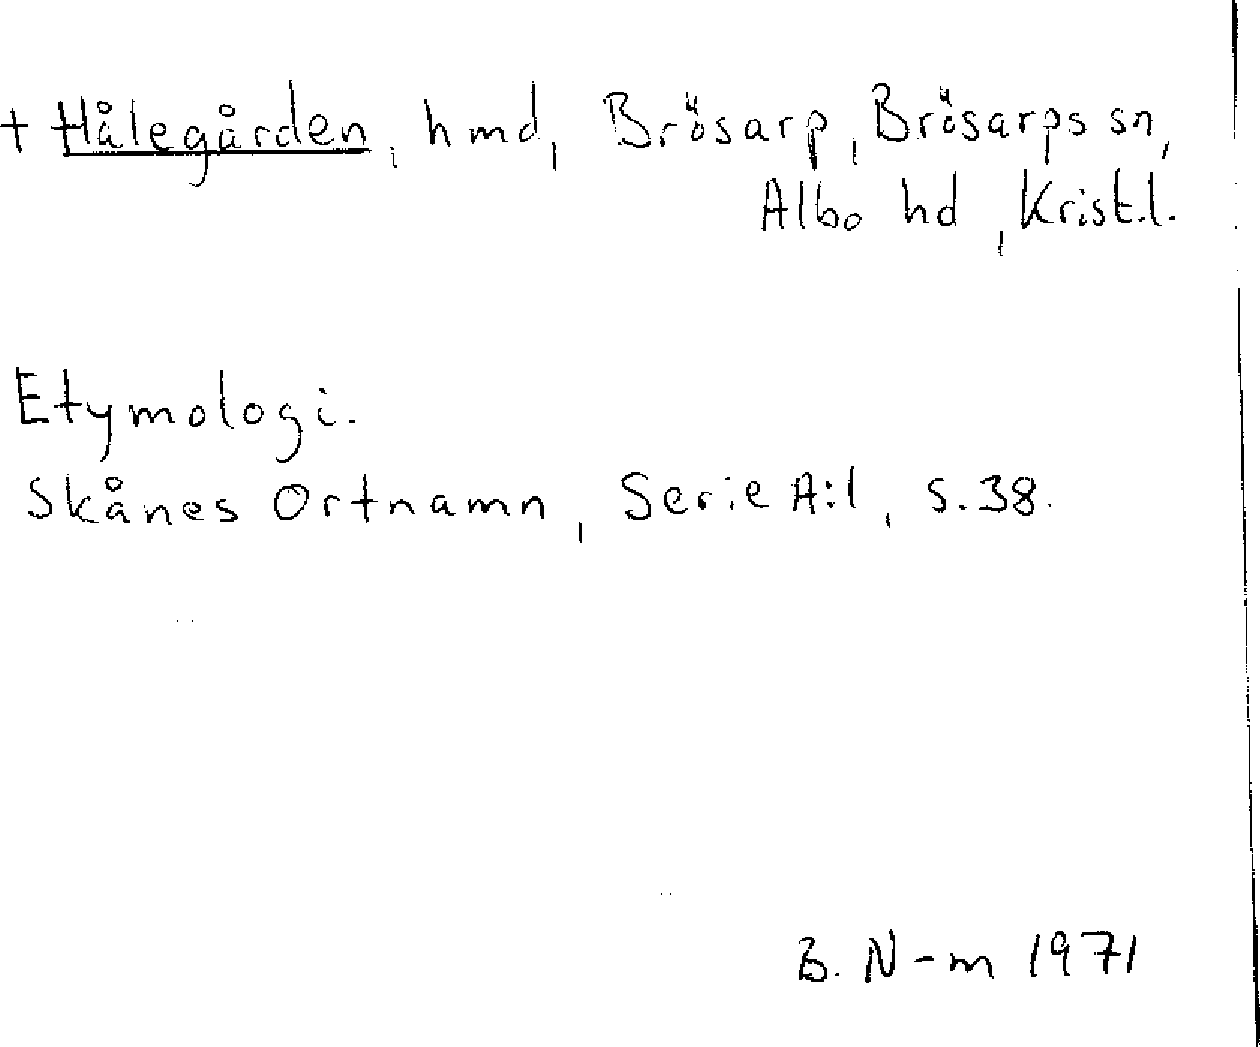 + Hålegården, hmd, Brösarp, Brösarps sn,
Albo hd, Krist.l.
Etymologi.
Skånes Ortnamn, Serie A:1, s.38.
B. N-m 1971